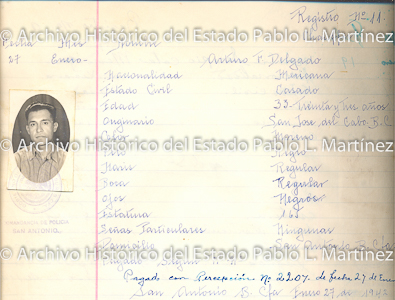 Registro No. 11.
Fecha Mes
27 Enero- Arturo T. Delgado
© Archivo Histórico del Estado Pablo L. Martínez
Nacionalidad Mexicana
Estado Civil Casado
Edad 33- Treinta y tres años
Originario San José del Cabo B.C.
Color Moreno
© Archivo Histórico del Estado Pablo L. Martínez
Pelo Negro
Regular
Regular
Ojos Negros
Estatura 1.65
SAN ANTONIO,
Señas Particulares Ningunas
© Archivo Histórico del Estado Pablo L. Martínez
Domicilio San Antonio B. Cfa
Pagado Según
Pagado con Percepción No 2207. de fecha 27 de Enero
San Antonio B. Cfa Enero 27 de 1942